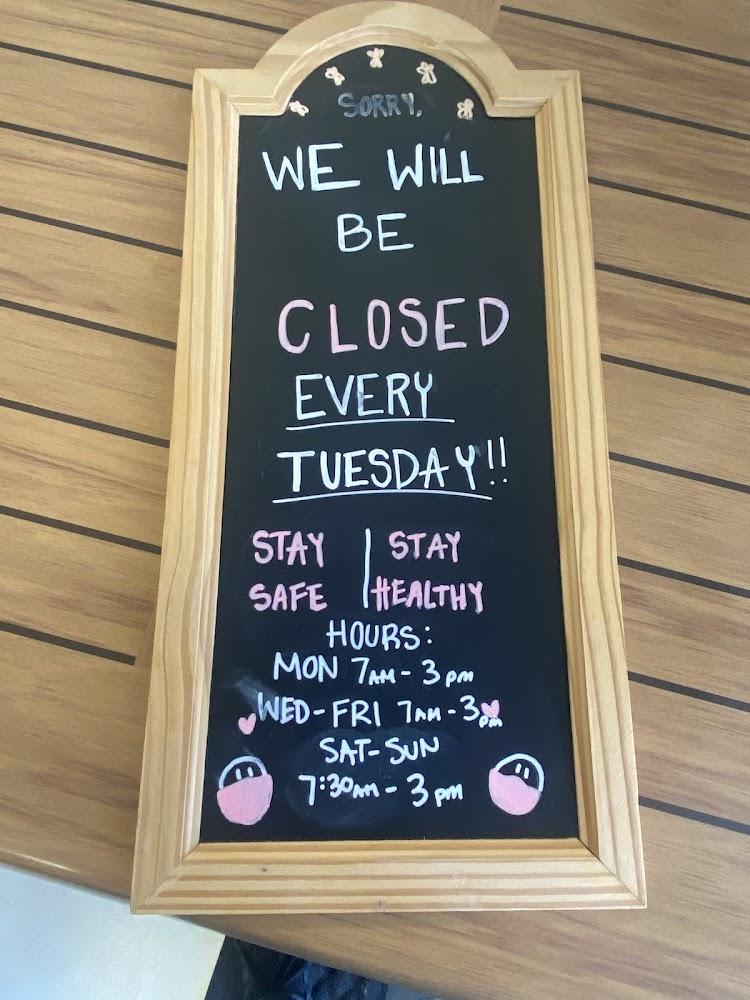 SORRY,
WE WILL
BE
CLOSED
EVERY
TUESDAY!!
STAY | STAY
SAFE | HEALTHY
HOURS:
MON 7AM - 3pm
WED-FRI 7AM - 3pm
SAT-SUN
7:30AM - 3pm